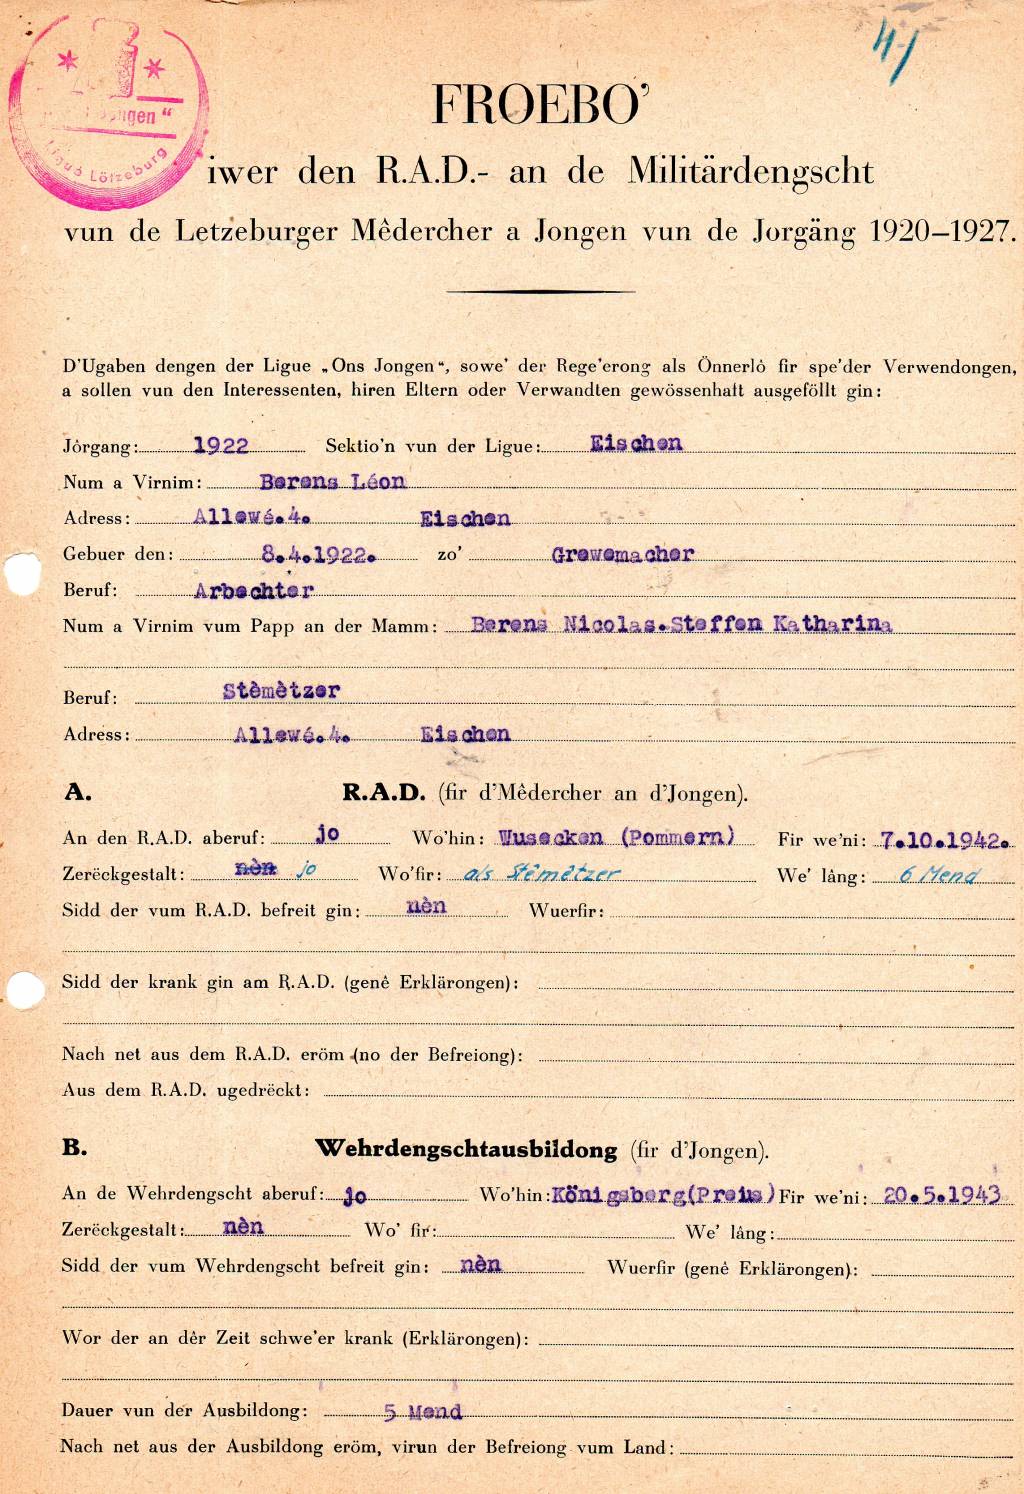 41
ngen“
Ligue Lötzeburg
FROEBO’
iwer den R.A.D.- an de Militärdengscht
vun de Letzeburger Mêdercher a Jongen vun de Jorgäng 1920–1927.
D’Ugaben dengen der Ligue „Ons Jongen“, sowe’ der Rege’erong als Önnerlô fir spe’der Verwendongen,
a sollen vun den Interessenten, hiren Eltern oder Verwandten gewössenhaft ausgeföllt gin:
Jôrgang: 1922 Sektio’n vun der Ligue: Eischen
Num a Virnim: Berens Léon
Adress: Allewé.4. Eischen
Gebuer den: 8.4.1922. zo’ Grewemacher
Beruf: Arbechter
Num a Virnim vum Papp an der Mamm: Berens Nicolas.Steffen Katharina
Beruf: Stèmètzer
Adress: Allewé.4. Eischen
A. R.A.D. (fir d’Mêdercher an d’Jongen).
An den R.A.D. aberuf: jo Wo’hin: Wusecken (Pommern) Fir we’ni: 7.10.1942.
Zerëckgestalt: nèn jo Wo’fir: als Stêmètzer We’ lâng: 6 Mend
Sidd der vum R.A.D. befreit gin: nèn Wuerfir:
Sidd der krank gin am R.A.D. (genê Erklärongen):
Nach net aus dem R.A.D. eröm (no der Befreiong):
Aus dem R.A.D. ugedrëckt:
B. Wehrdengschtausbildong (fir d’Jongen).
An de Wehrdengscht aberuf: jo Wo’hin: Königsberg(Preis) Fir we’ni: 20.5.1943
Zerëckgestalt: nèn Wo’ fir: We’ lâng:
Sidd der vum Wehrdengscht befreit gin: nèn Wuerfir (genê Erklärongen):
Wor der an dêr Zeit schwe’er krank (Erklärongen):
Dauer vun der Ausbildong: 5 Mend
Nach net aus der Ausbildong eröm, virun der Befreiong vum Land: